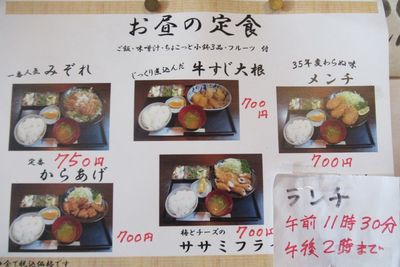 お昼の定食
ご飯・味噌汁・ちょこっと小鉢3品・フルーツ 付
一番人気 みぞれ
じっくり煮込んだ 牛すじ大根
35年変わらぬ味
メンチ
700円
定番 750円
からあげ
700円
700円
700円
梅とチーズの
ササミフライ
ランチ
午前11時30分
午後2時まで
全て税込価格です